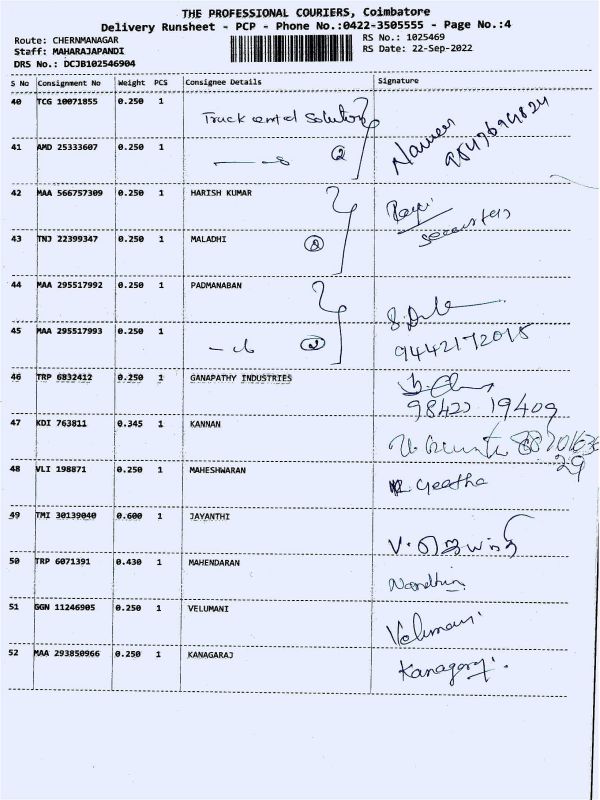 THE PROFESSIONAL COURIERS, Coimbatore
Delivery Runsheet - PCP - Phone No.:0422-3505555 - Page No.:4
Route: CHERNMANAGAR
Staff: MAHARAJAPANDI
DRS No.: DCJB102546904
RS No.: 1025469
RS Date: 22-Sep-2022
S No Consignment No Weight PCS Consignee Details Signature
40 TCG 10071855 0.250 1 Truck
41 AMD 25333607 0.250 1 2 Naveen
42 MAA 566757309 0.250 1 HARISH KUMAR
43 TNJ 22399347 0.250 1 MALADHI 2
44 MAA 295517992 0.250 1 PADMANABAN
45 MAA 295517993 0.250 1 2 9442172015
46 TRP 6832412 0.250 1 GANAPATHY INDUSTRIES
98422 19409
47 KDI 763811 0.345 1 KANNAN
48 VLI 198871 0.250 1 MAHESHWARAN Geetha
49 TMI 30139040 0.600 1 JAYANTHI
50 TRP 6071391 0.430 1 MAHENDARAN Nandhini
51 GGN 11246905 0.250 1 VELUMANI Velumani
52 MAA 293850966 0.250 1 KANAGARAJ Kanagaraj.